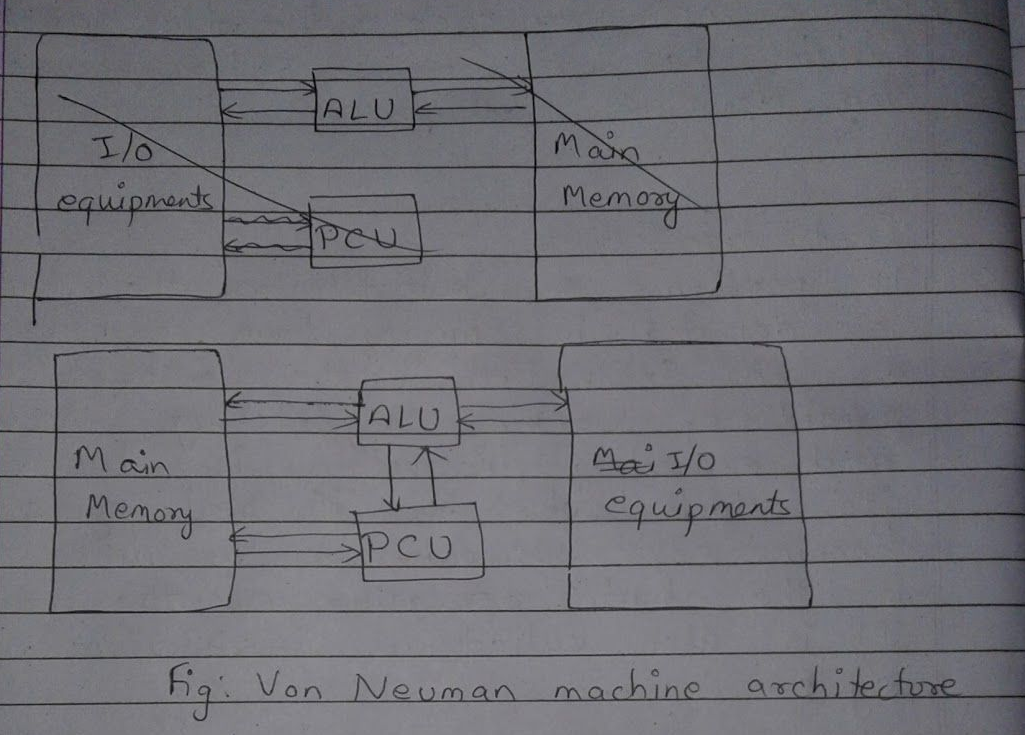 ALU
I/O
equipments
Main
Memory
PCU
ALU
Main
Memory
Mai I/O
equipments
PCU
Fig: Von Neuman machine architecture